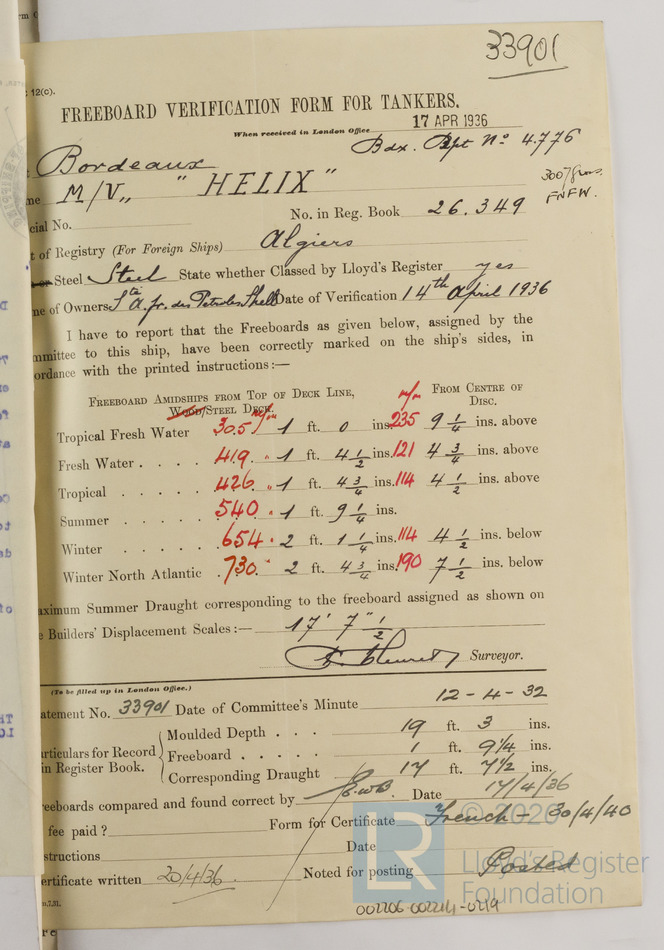 33901
12(c).
FREEBOARD VERIFICATION FORM FOR TANKERS.
When received in London Office 17 APR 1936
Bdx. Rpt No 4.776
Bordeaux
M/V „ " HELIX "
300/ FNFW.
cial No. No. in Reg. Book 26.349
t of Registry (For Foreign Ships) Algiers
Steel Steel State whether Classed by Lloyd's Register yes
ne of Owners Sté A. fr. des Petroles Shell Date of Verification 14th April 1936
I have to report that the Freeboards as given below, assigned by the
mmittee to this ship, have been correctly marked on the ship's sides, in
ordance with the printed instructions:—
FREEBOARD AMIDSHIPS FROM TOP OF DECK LINE, m/m FROM CENTRE OF
WOOD/STEEL DECK. DISC.
Tropical Fresh Water 305 m/m 1 ft. 0 ins. 235 9 1/4 ins. above
Fresh Water . . . . 419 " 1 ft. 4 1/2 ins. 121 4 3/4 ins. above
Tropical . . . . . 426 " 1 ft. 4 3/4 ins. 114 4 1/2 ins. above
Summer . . . . . 540 " 1 ft. 9 1/4 ins.
Winter . . . . . 654 " 2 ft. 1 1/4 ins. 114 4 1/2 ins. below
Winter North Atlantic . 730 " 2 ft. 4 3/4 ins. 190 7 1/2 ins. below
aximum Summer Draught corresponding to the freeboard assigned as shown on
e Builders' Displacement Scales:— 17' 7" 1/2
Surveyor.
(To be filled up in London Office.)
atement No. 33901 Date of Committee's Minute 12-4-32
articulars for Record in Register Book.
Moulded Depth . . . 19 ft. 3 ins.
Freeboard . . . . . 1 ft. 9 1/4 ins.
Corresponding Draught 17 ft. 7 1/2 ins.
reeboards compared and found correct by E.W.B. Date 17/4/36
fee paid ? Form for Certificate French - 30/4/40
structions Date
ertificate written 20/4/36. Noted for posting Posted
© 2020
LR
Lloyd's Register
Foundation
002206-002214-0219